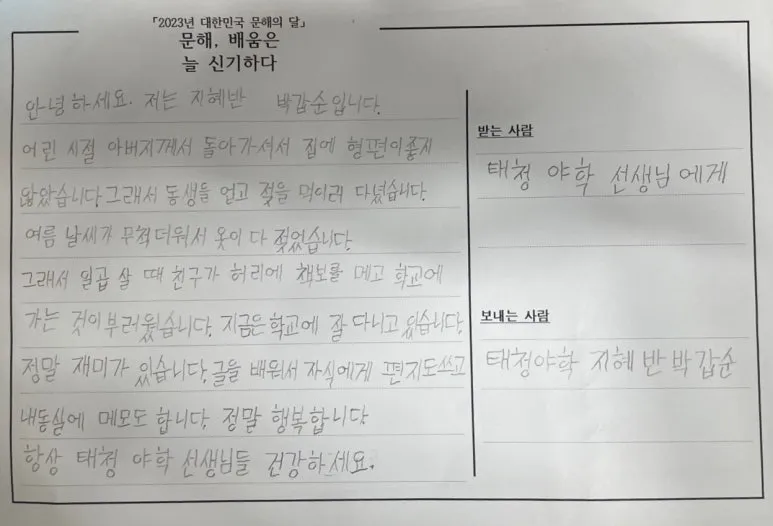 「2023년 대한민국 문해의 달」
문해, 배움은
늘 신기하다
안녕하세요. 저는 지혜반 박갑순입니다.
어린 시절 아버지께서 돌아가셔서 집에 형편이좋지
않았습니다.그래서 동생을 업고 젖을 먹이러 다녔습니다.
여름 날세가 무척더워서 옷이 다 젖었습니다.
그래서 일곱 살 때 친구가 허리에 책보를 메고 학교에
가는 것이 부러웠습니다. 지금은 학교에 잘 다니고 있습니다.
정말 재미가 있습니다.글을 배워서 자식에게 편지도쓰고
내동실에 메모도 합니다. 정말 행복합니다.
항상 태청 야학 선생님들 건강하세요.
받는 사람
태청 야학 선생님에게
보내는 사람
태청야학 지혜반 박갑순